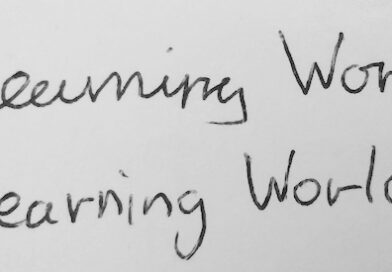 earning Wor
earning World